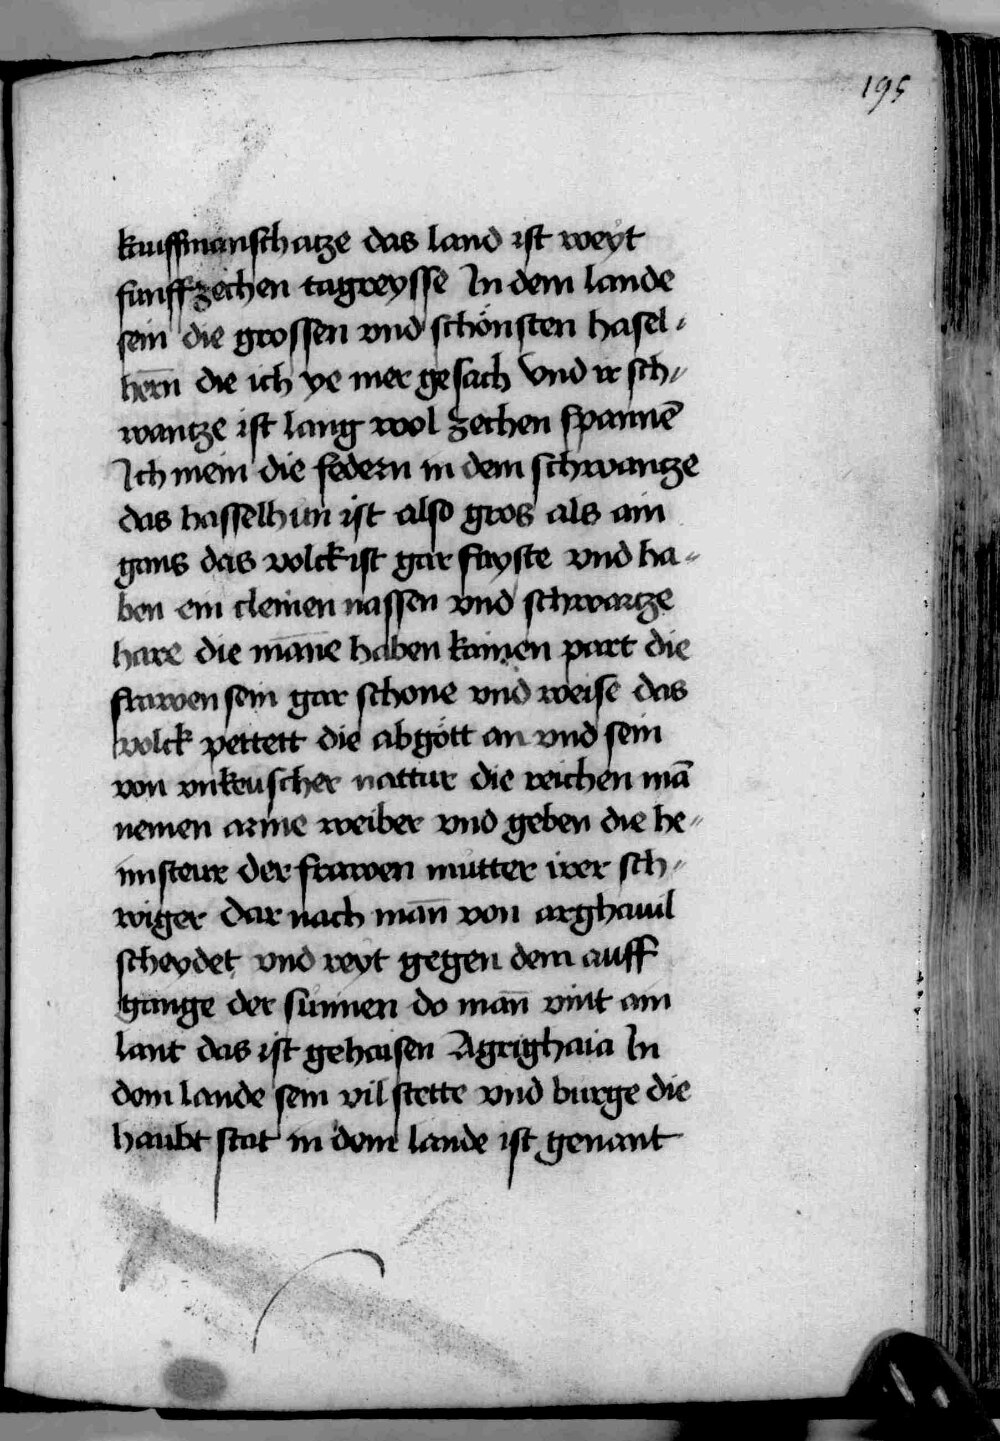 195
kauffmanschatze das land ist weyt
funffzechen tagreysse In dem lande
sein die grossen vnd schönsten hasel-
hern̄ die ich ye mer gesach Vnd ir sch-
wantze ist lang wol zechen spannē
Ich mein die federn in dem schwantze
das hasselhun ist also gros als ain
gans das volck ist gar fayste vnd ha-
ben ein cleinen nassen vnd schwartze
hare die man̄e haben kainen part die
frawen sein gar schone vnd weise das
volck pettett die abgött an vnd sein
von vnkeuscher nattur die reichen mā
nemen arme weiber vnd geben die he-
imsteur der frawen mutter irer sch-
wiger Dar nach man̄ von arghauil
scheydet vnd reyt gegen dem auff
gange der sunnen do man̄ vint ain
lant das ist gehaisen Agrighaia In
dem lande sein vil stette vnd burge die
haubt stat in dem lande ist genant